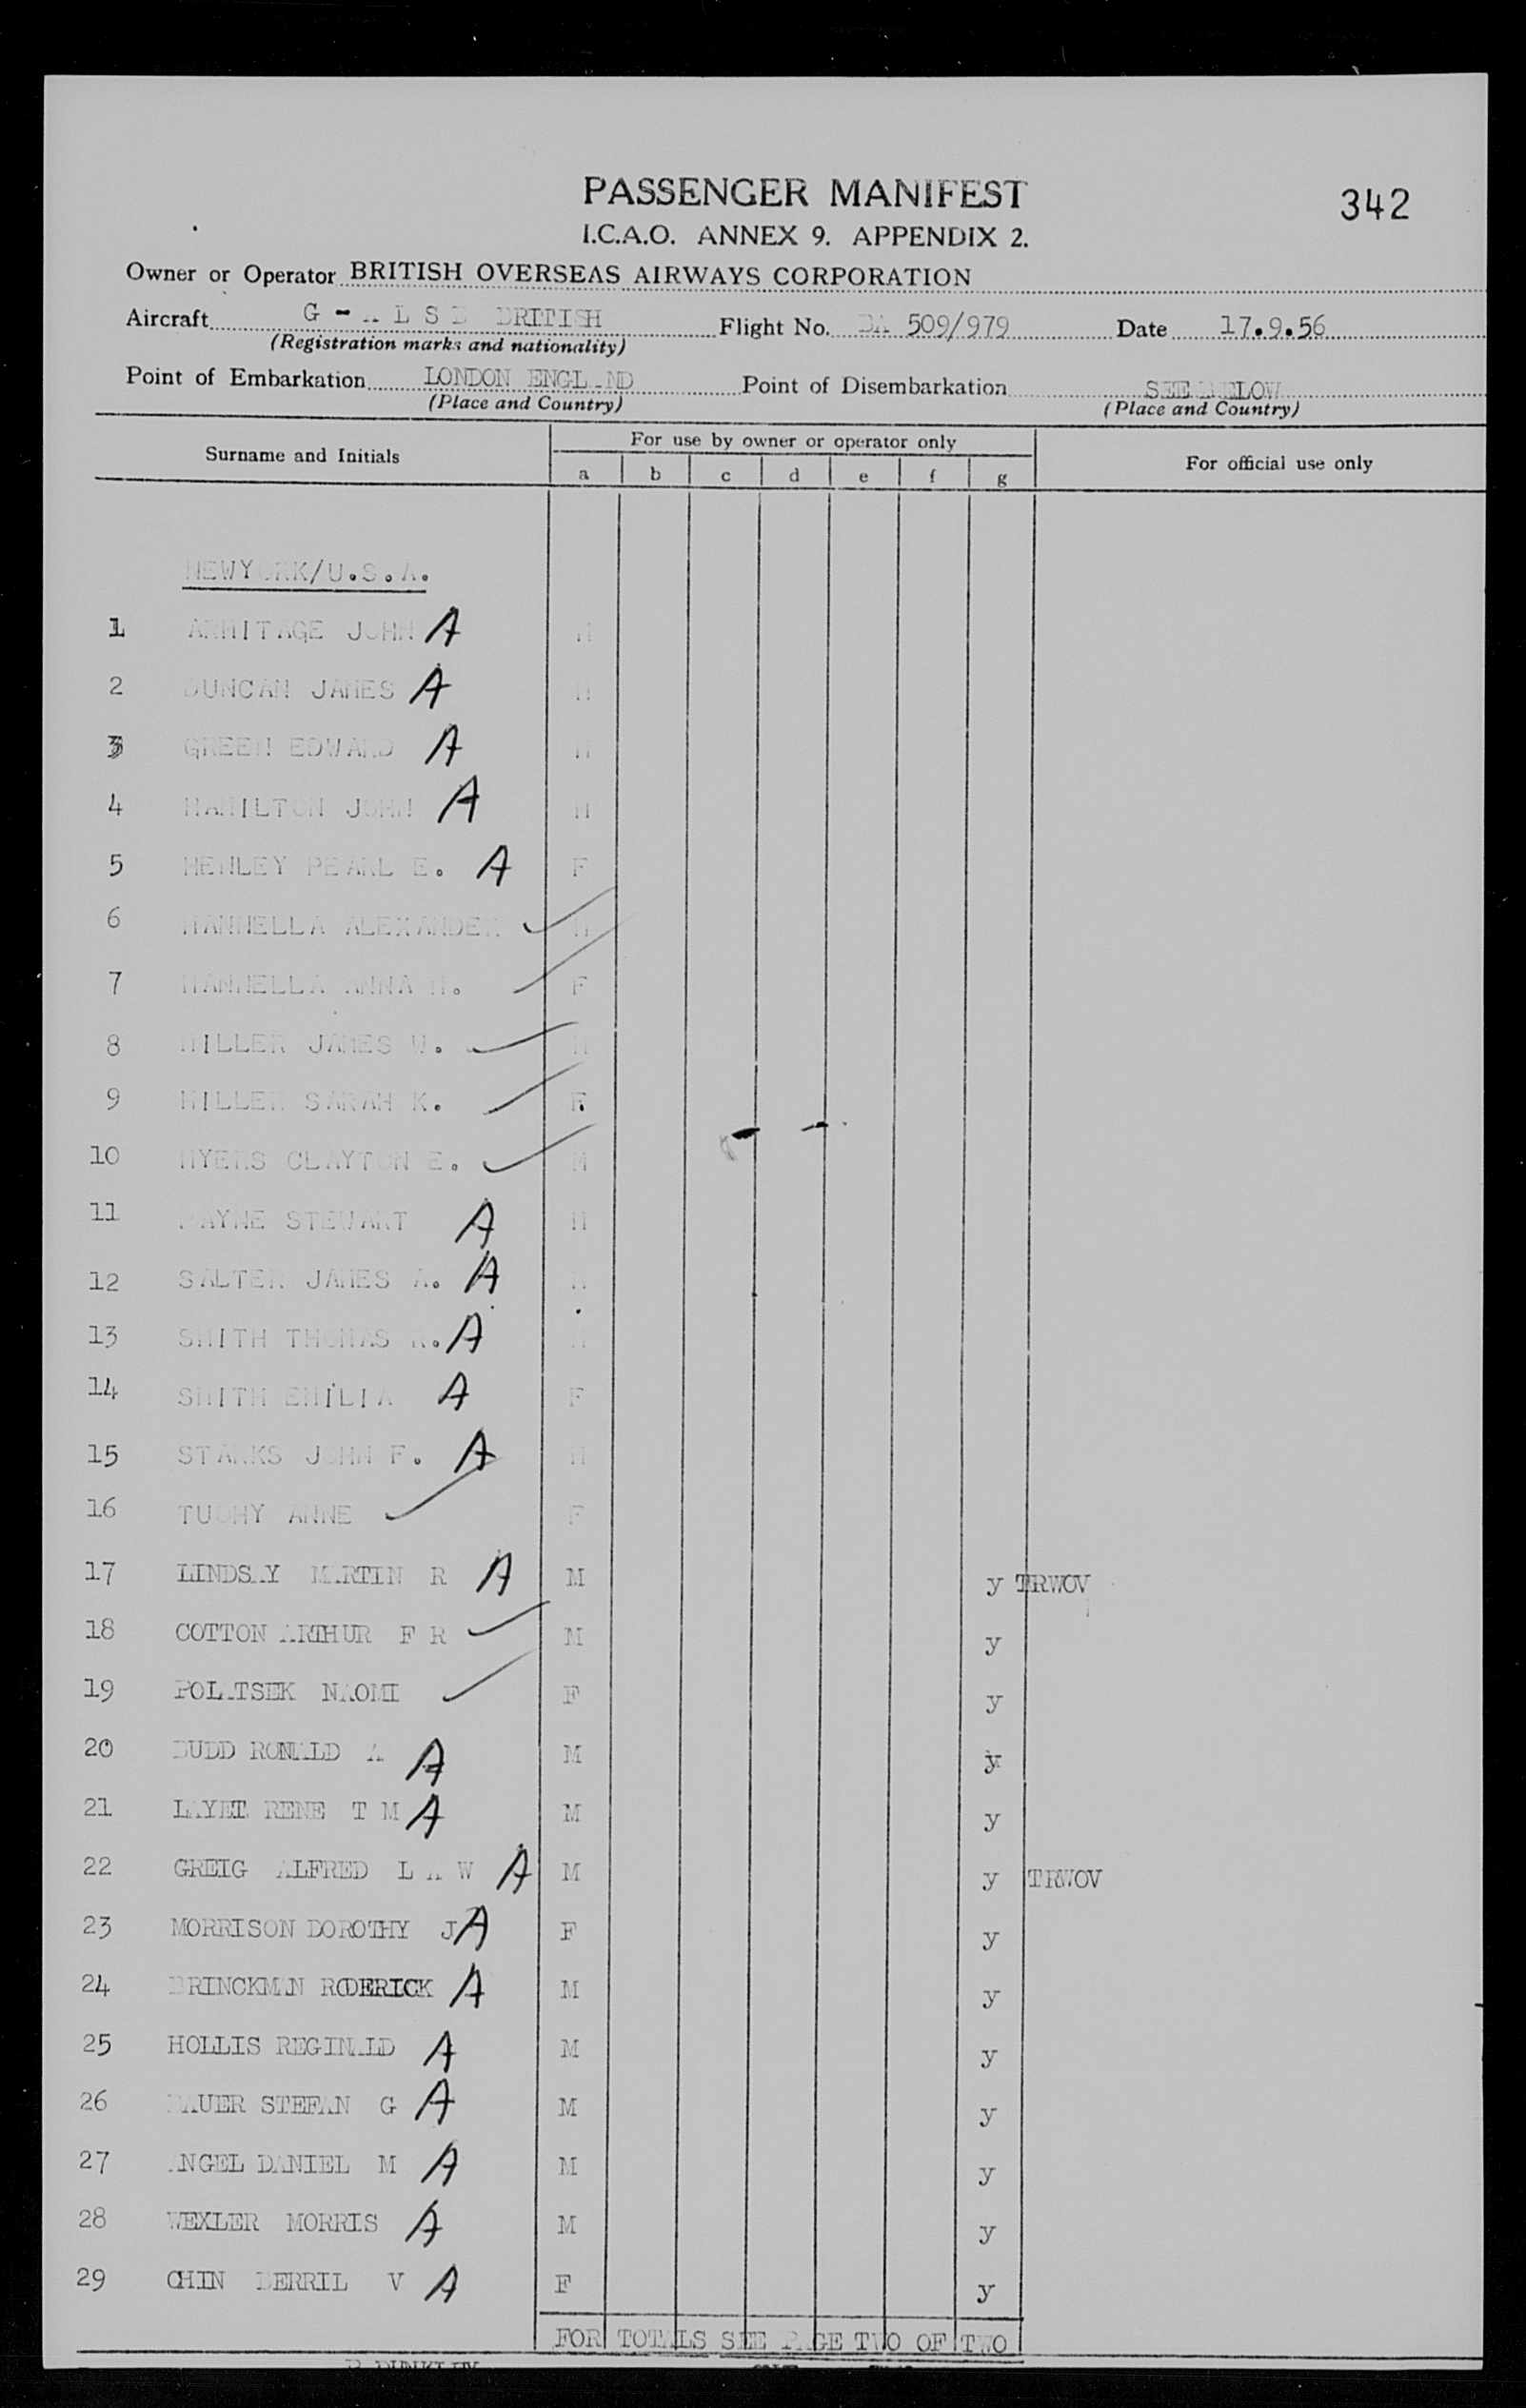 PASSENGER MANIFEST
342
I.C.A.O. ANNEX 9. APPENDIX 2.
Owner or Operator BRITISH OVERSEAS AIRWAYS CORPORATION
Aircraft G - A L S D BRITISH Flight No. BA 509/979 Date 17.9.56
(Registration marks and nationality)
Point of Embarkation LONDON ENGLAND Point of Disembarkation SEE BELOW
(Place and Country) (Place and Country)
Surname and Initials For use by owner or operator only For official use only
a b c d e f g
NEWYORK/U.S.A.
1 ARMITAGE JOHN A M
2 DUNCAN JAMES A M
3 GREEN EDWARD A M
4 HAMILTON JOHN A M
5 HENLEY PEARL E. A F
6 MANNELLA ALEXANDER M
7 MANNELLA ANNA M. F
8 MILLER JAMES W. M
9 MILLER SARAH K. F
10 MYERS CLAYTON E. M
11 PAYNE STEWART A M
12 SALTER JAMES A. A M
13 SMITH THOMAS R. A M
14 SMITH EMILIA A F
15 STARKS JOHN F. A M
16 TUOHY ANNE F
17 LINDSAY MARTIN R A M y TRWOV
18 COTTON ARTHUR F R M y
19 POLATSEK NAOMI F y
20 BUDD RONALD A A M y
21 LAYET RENE T M A M y
22 GREIG ALFRED L A W A M y TRWOV
23 MORRISON DOROTHY J A F y
24 BRINCKMAN RODERICK A M y
25 HOLLIS REGINALD A M y
26 BAUER STEFAN G A M y
27 ANGEL DANIEL M A M y
28 WEXLER MORRIS A M y
29 CHIN BERRIL V A F y
FOR TOTALS SEE PAGE TWO OF TWO